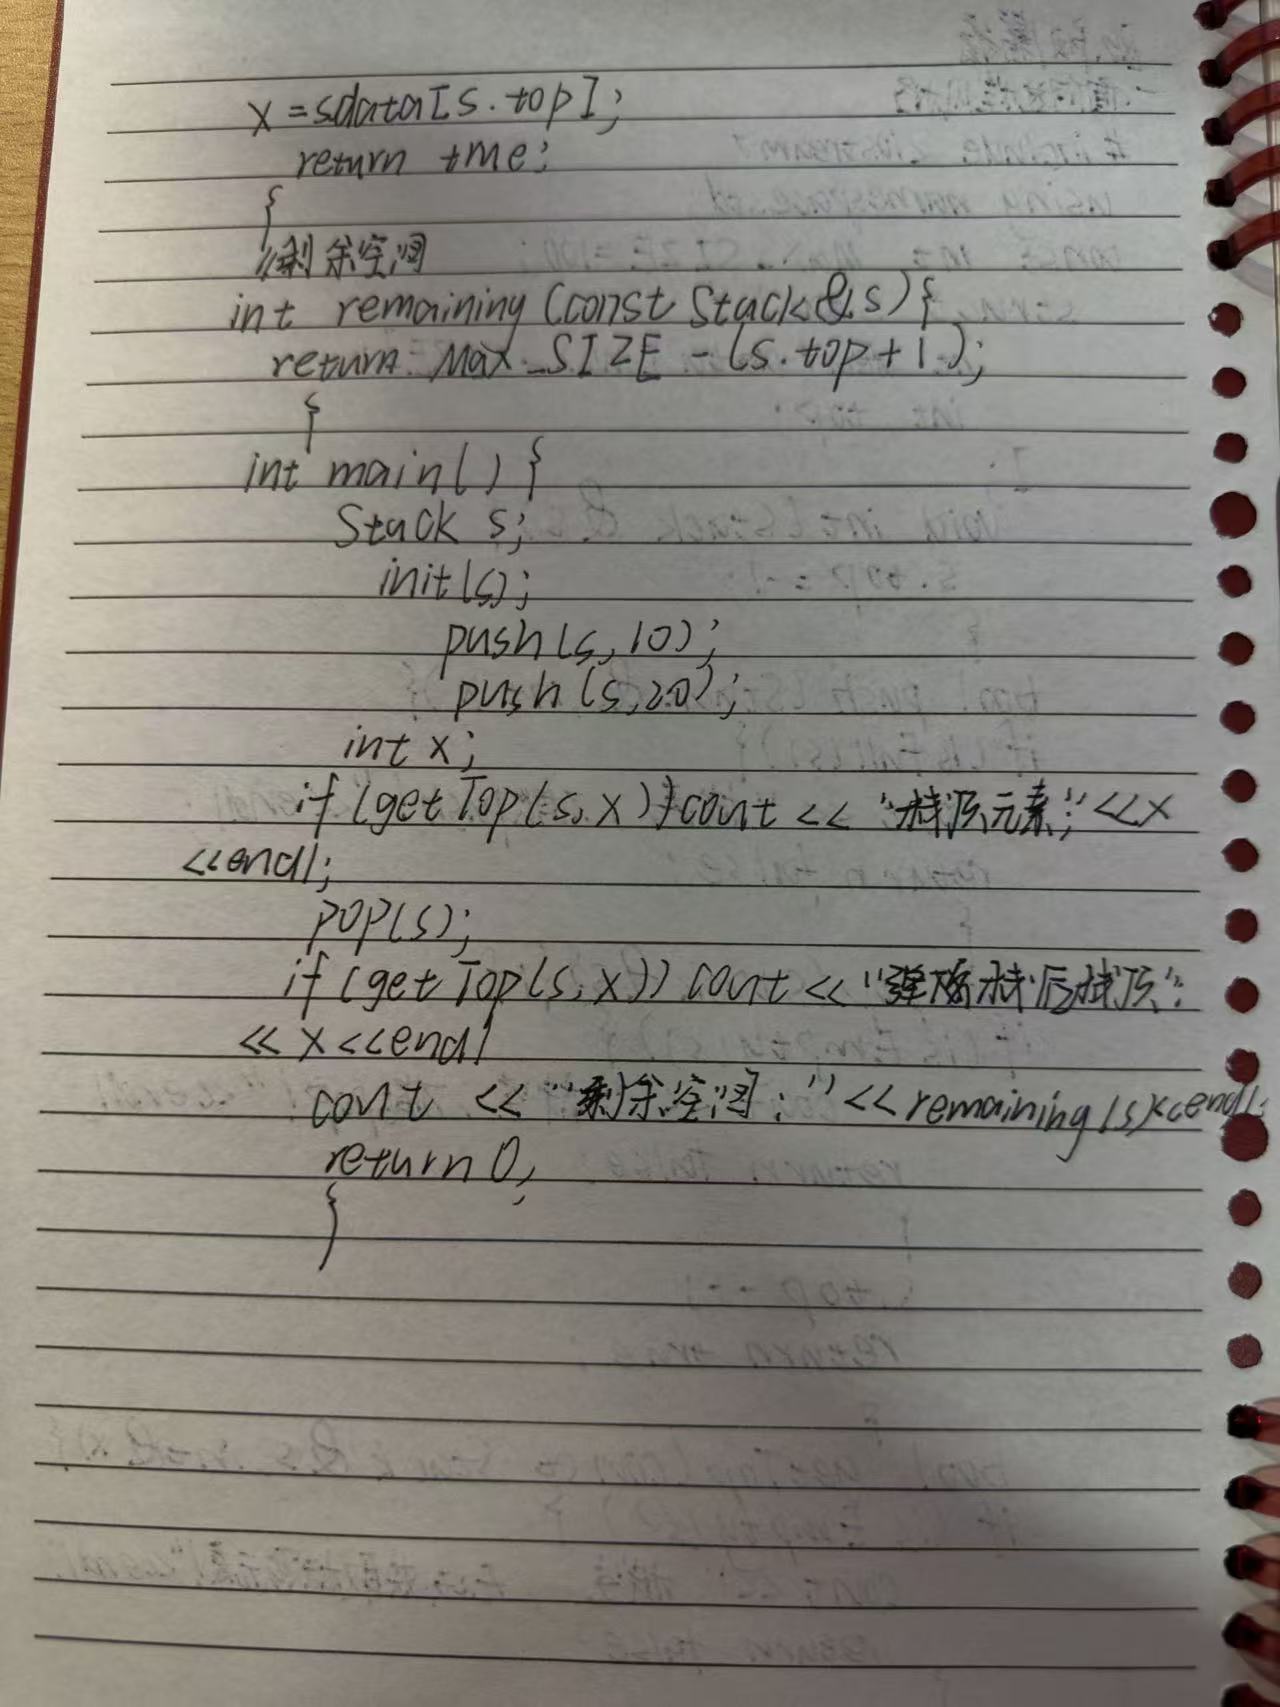 x = sdata[s.top];
return tme;
}
//剩余空间
int remaining (const Stack & s) {
return Max_SIZE - (s.top + 1);
}
int main() {
Stack s;
init(s);
push(s, 10);
push(s, 20);
int x;
if (getTop(s, x)) cout << "栈顶元素;" << x
<< endl;
pop(s);
if (getTop(s, x)) cout << "栈后栈顶":
<< x << endl
cout << "剩余空间: " << remaining(s) << endl;
return 0;
}